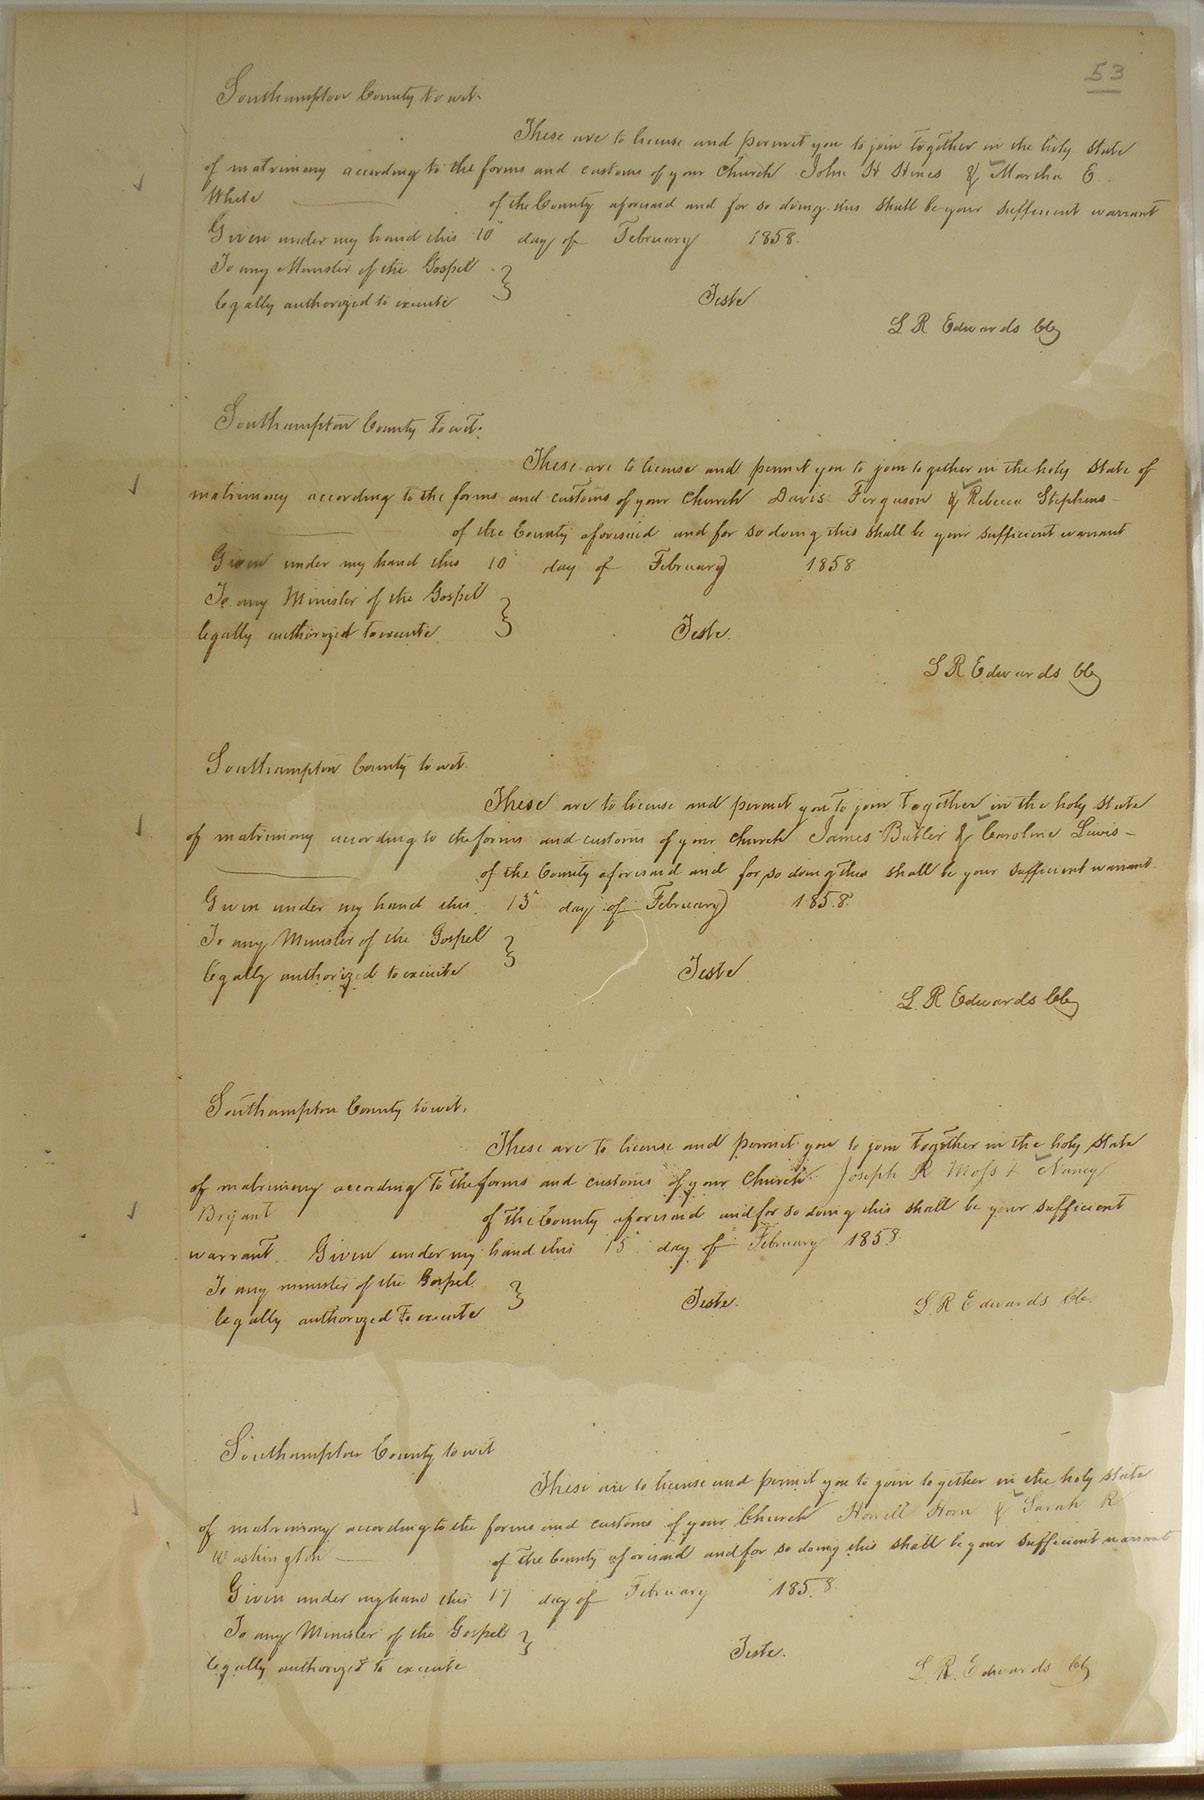 53
Southampton County to wit.
These are to license and permit you to join together in the holy state
of matrimony according to the forms and customs of your Church John H Hines & Martha E
White of the County aforesaid and for so doing this shall be your sufficient warrant
Given under my hand this 10" day of February 1858.
To any Minister of the Gospel
legally authorized to execute
Teste
L R Edwards Clk
Southampton County To wit:
These are to license and permit you to join together in the holy state of
matrimony according to the forms and customs of your Church Davis Ferguson & Rebecca Stephens
of the County aforesaid and for so doing this shall be your sufficient warrant
Given under my hand this 10" day of February 1858
To any Minister of the Gospel
legally authorized to execute
Teste.
L R Edwards Clk
Southampton County to wit.
These are to license and permit you to join together in the holy state
of matrimony according to the forms and customs of your Church James Butler & Caroline Lewis
of the County aforesaid and for so doing this shall be your sufficient warrant
Given under my hand this 15" day of February 1858.
To any Minister of the Gospel
legally authorized to execute
Teste
L. R Edwards Clk
Southampton County to wit.
These are to license and permit you to join together in the holy state
of matrimony according to the forms and customs of your Church Joseph R Moss & Nancy
Bryant of the County aforesaid and for so doing this shall be your sufficient
warrant. Given under my hand this 15" day of February 1858
To any minister of the Gospel
legally authorized to execute
Teste.
L R Edwards Clk
Southampton County to wit
These are to license and permit you to join together in the holy state
of matrimony according to the forms and customs of your Church Howell Horn & Sarah R
Washington of the County aforesaid and for so doing this shall be your sufficient warrant
Given under my hand this 17 day of February 1858.
To any Minister of the Gospel
legally authorized to execute
Teste.
L. R. Edwards Clk